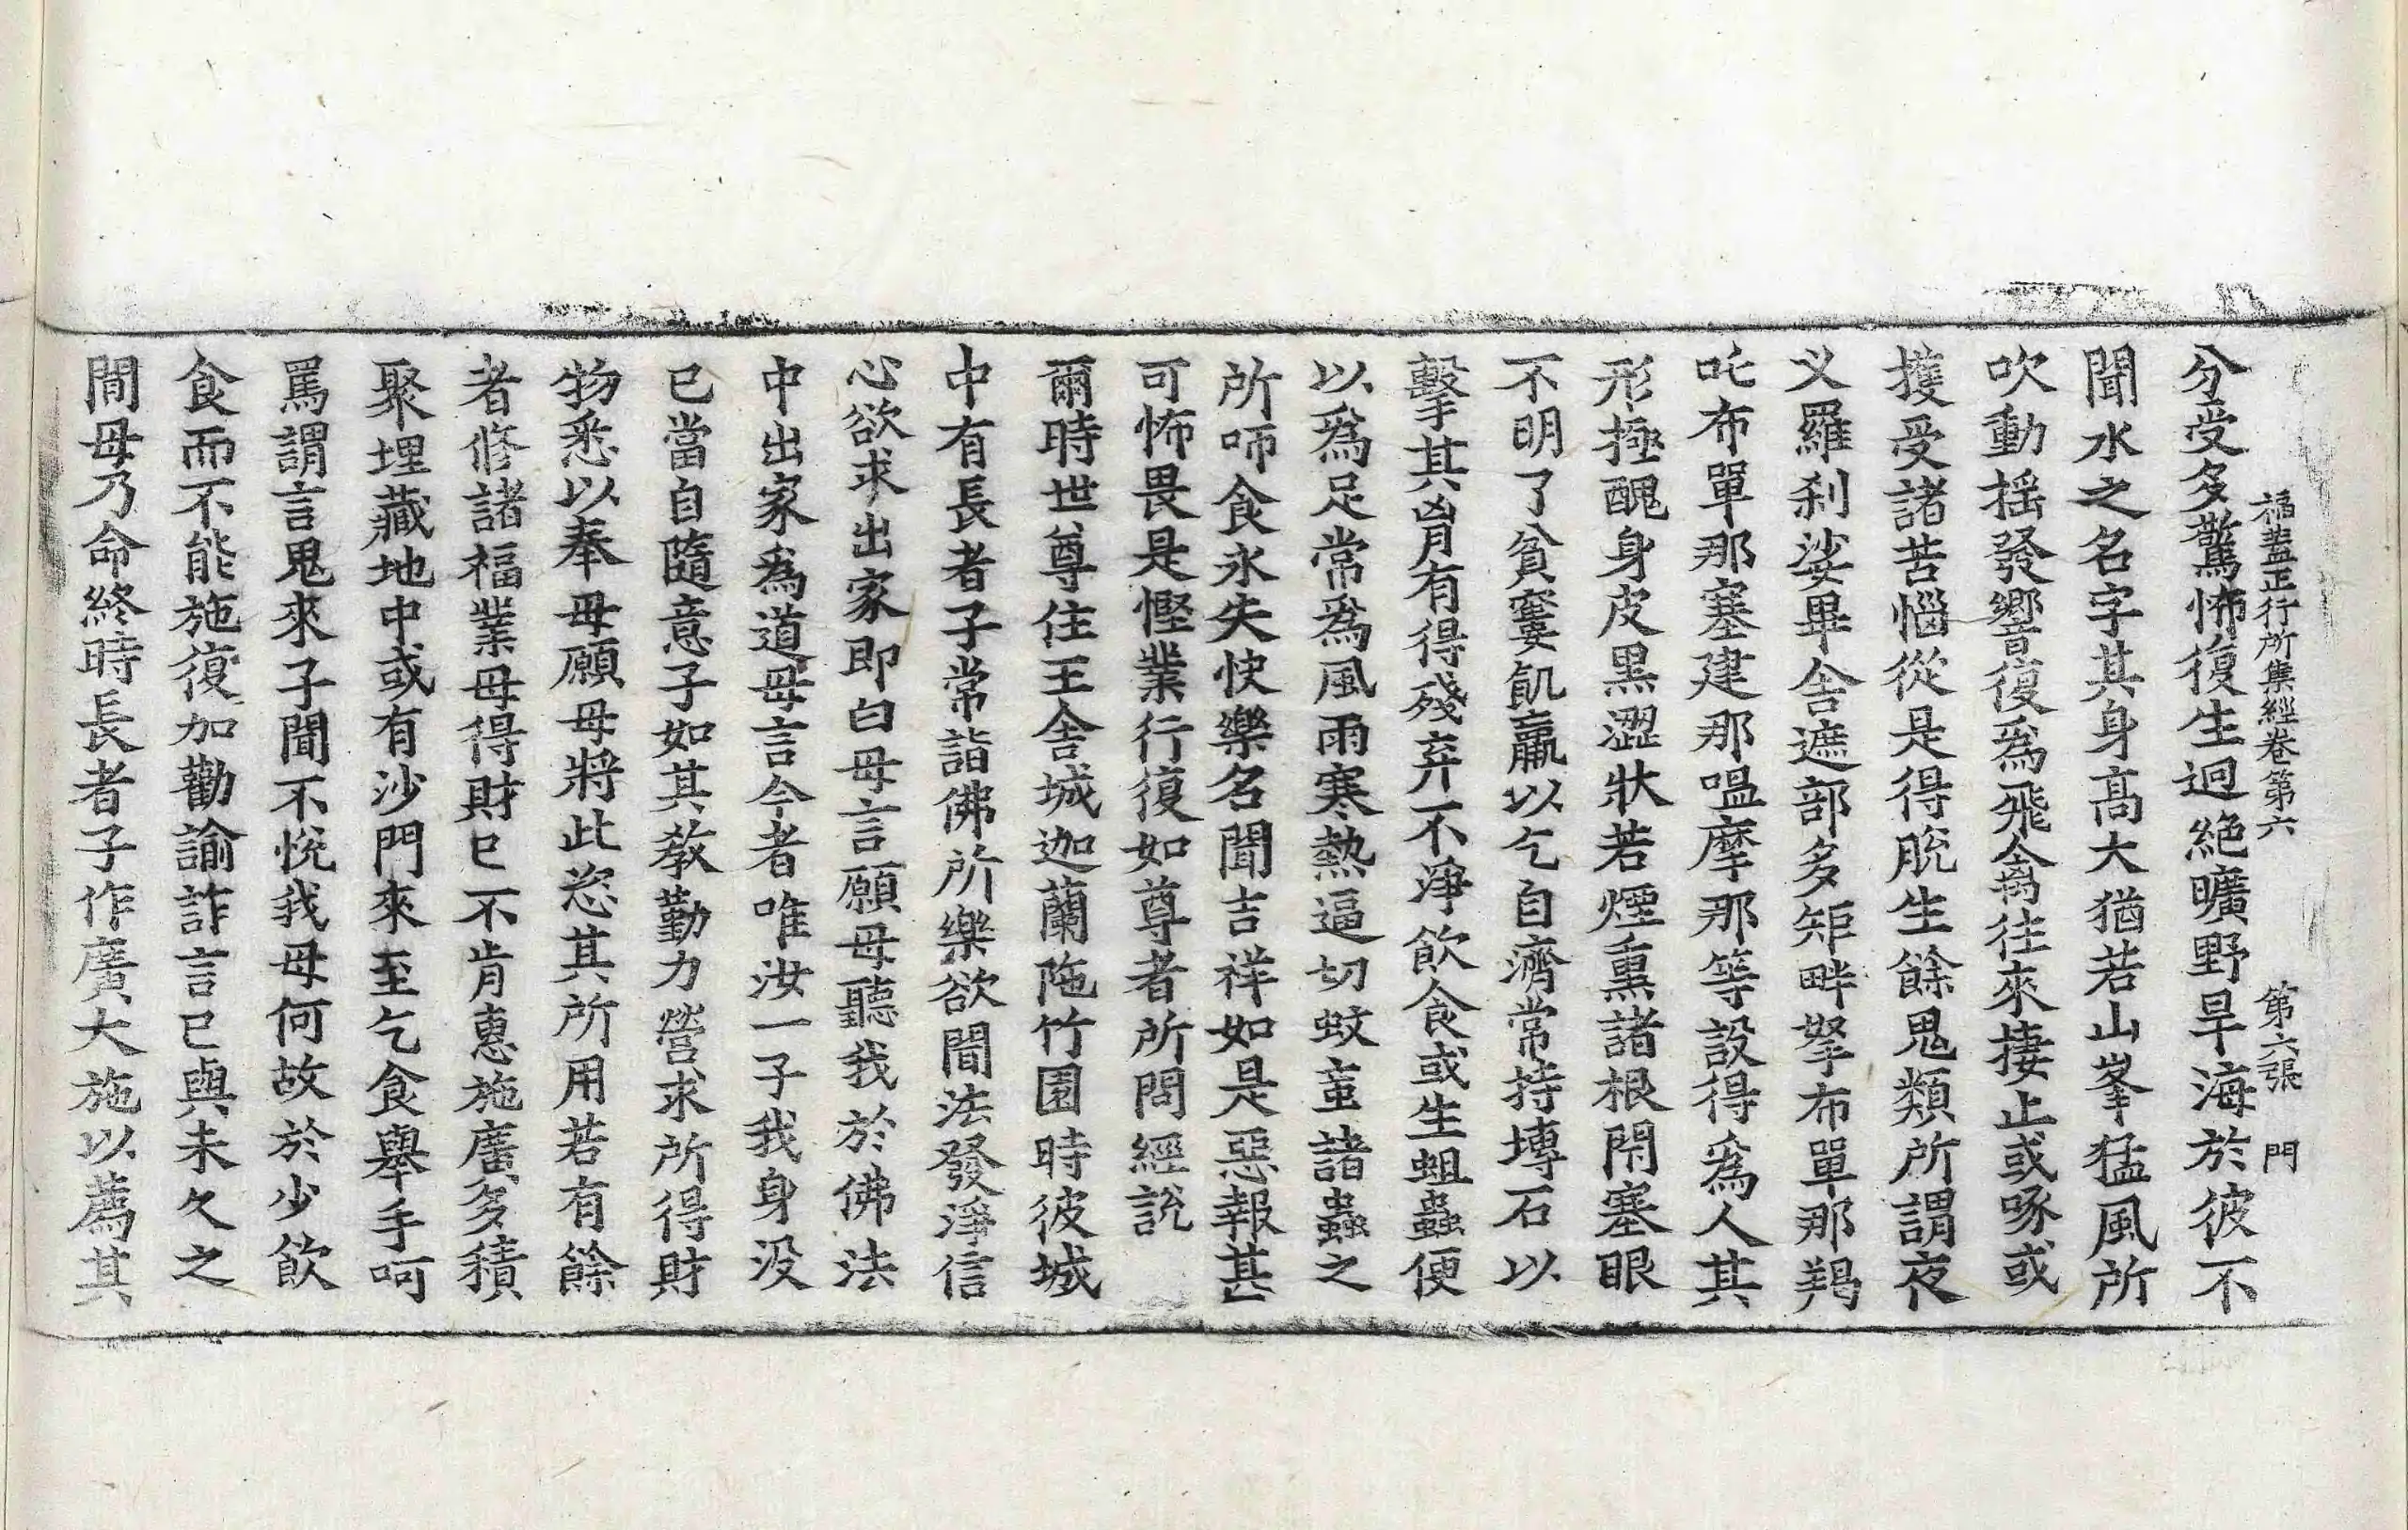 福蓋正行所集經卷第六 第六張 門
分受多驚怖復生迥絶曠野旱海於彼不
聞水之名字其身高大猶若山峯猛風所
吹動揺發響復爲飛禽往來捿止或啄或
擭受諸苦惱從是得脫生餘鬼類所謂夜
义羅刹娑畢舎遮部多矩畔拏布單那羯
吒布單那塞建那嗢摩那等設得爲人其
形極醜身皮黒澀狀若煙熏諸根閇塞眼
不明了貧窶飢羸以乞自濟常持塼石以
擊其胷有得殘弃不淨飲食或生蛆蟲便
以爲足常爲風雨寒熱逼切蚊䖟諸蟲之
所咂食永失快樂名聞吉祥如是惡報甚
可怖畏是慳業行復如尊者所問經說
爾時世尊住王舎城迦蘭陁竹園時彼城
中有長者子常詣佛所樂欲聞法發淨信
心欲求出家即白母言願母聽我於佛法
中出家爲道母言今者唯汝一子我身没
已當自隨意子如其教勤力營求所得財
物悉以奉母願母將此恣其所用若有餘
者修諸福業母得財已不肯惠施廣多積
聚埋藏地中或有沙門來至乞食舉手呵
罵謂言鬼來子聞不悅我母何故於少飲
食而不能施復加勸諭詐言已與未久之
間母乃命終時長者子作廣大施以薦其